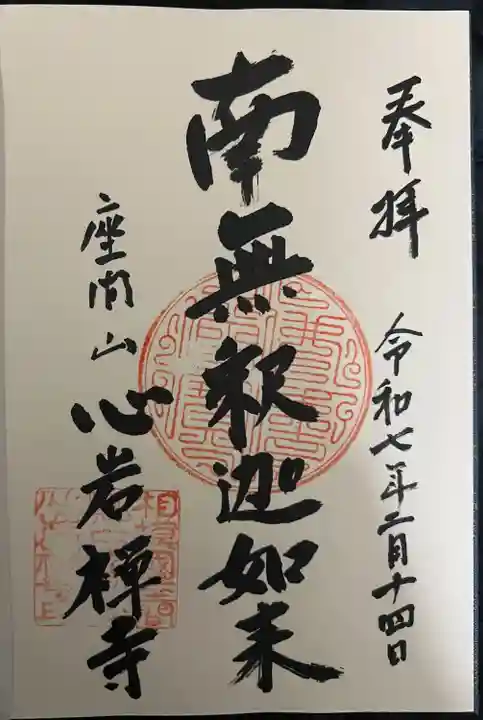 奉拝 令和七年二月十四日
南無釈迦如来
座間山 心岩禅寺